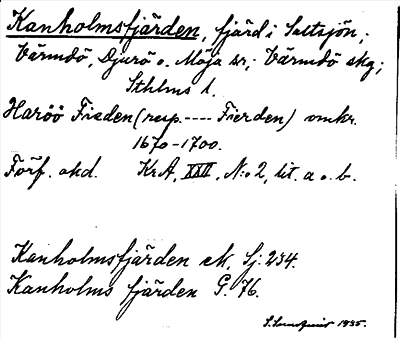 Kanholmsfjärden, fjärd i Saltsjön,;
Värmdö, Djurö o. Möja sr,; Värmdö skg;
Sthlms l.
Haröö Fierden (resp. ---- Fierden) omkr.
1670-1700.
Förf. okd. KrA, XXII, N:o 2, lit. a o. b.
Kanholmsfjärden ek, Sj: 234.
Kanholms fjärden G. 76.
1935.